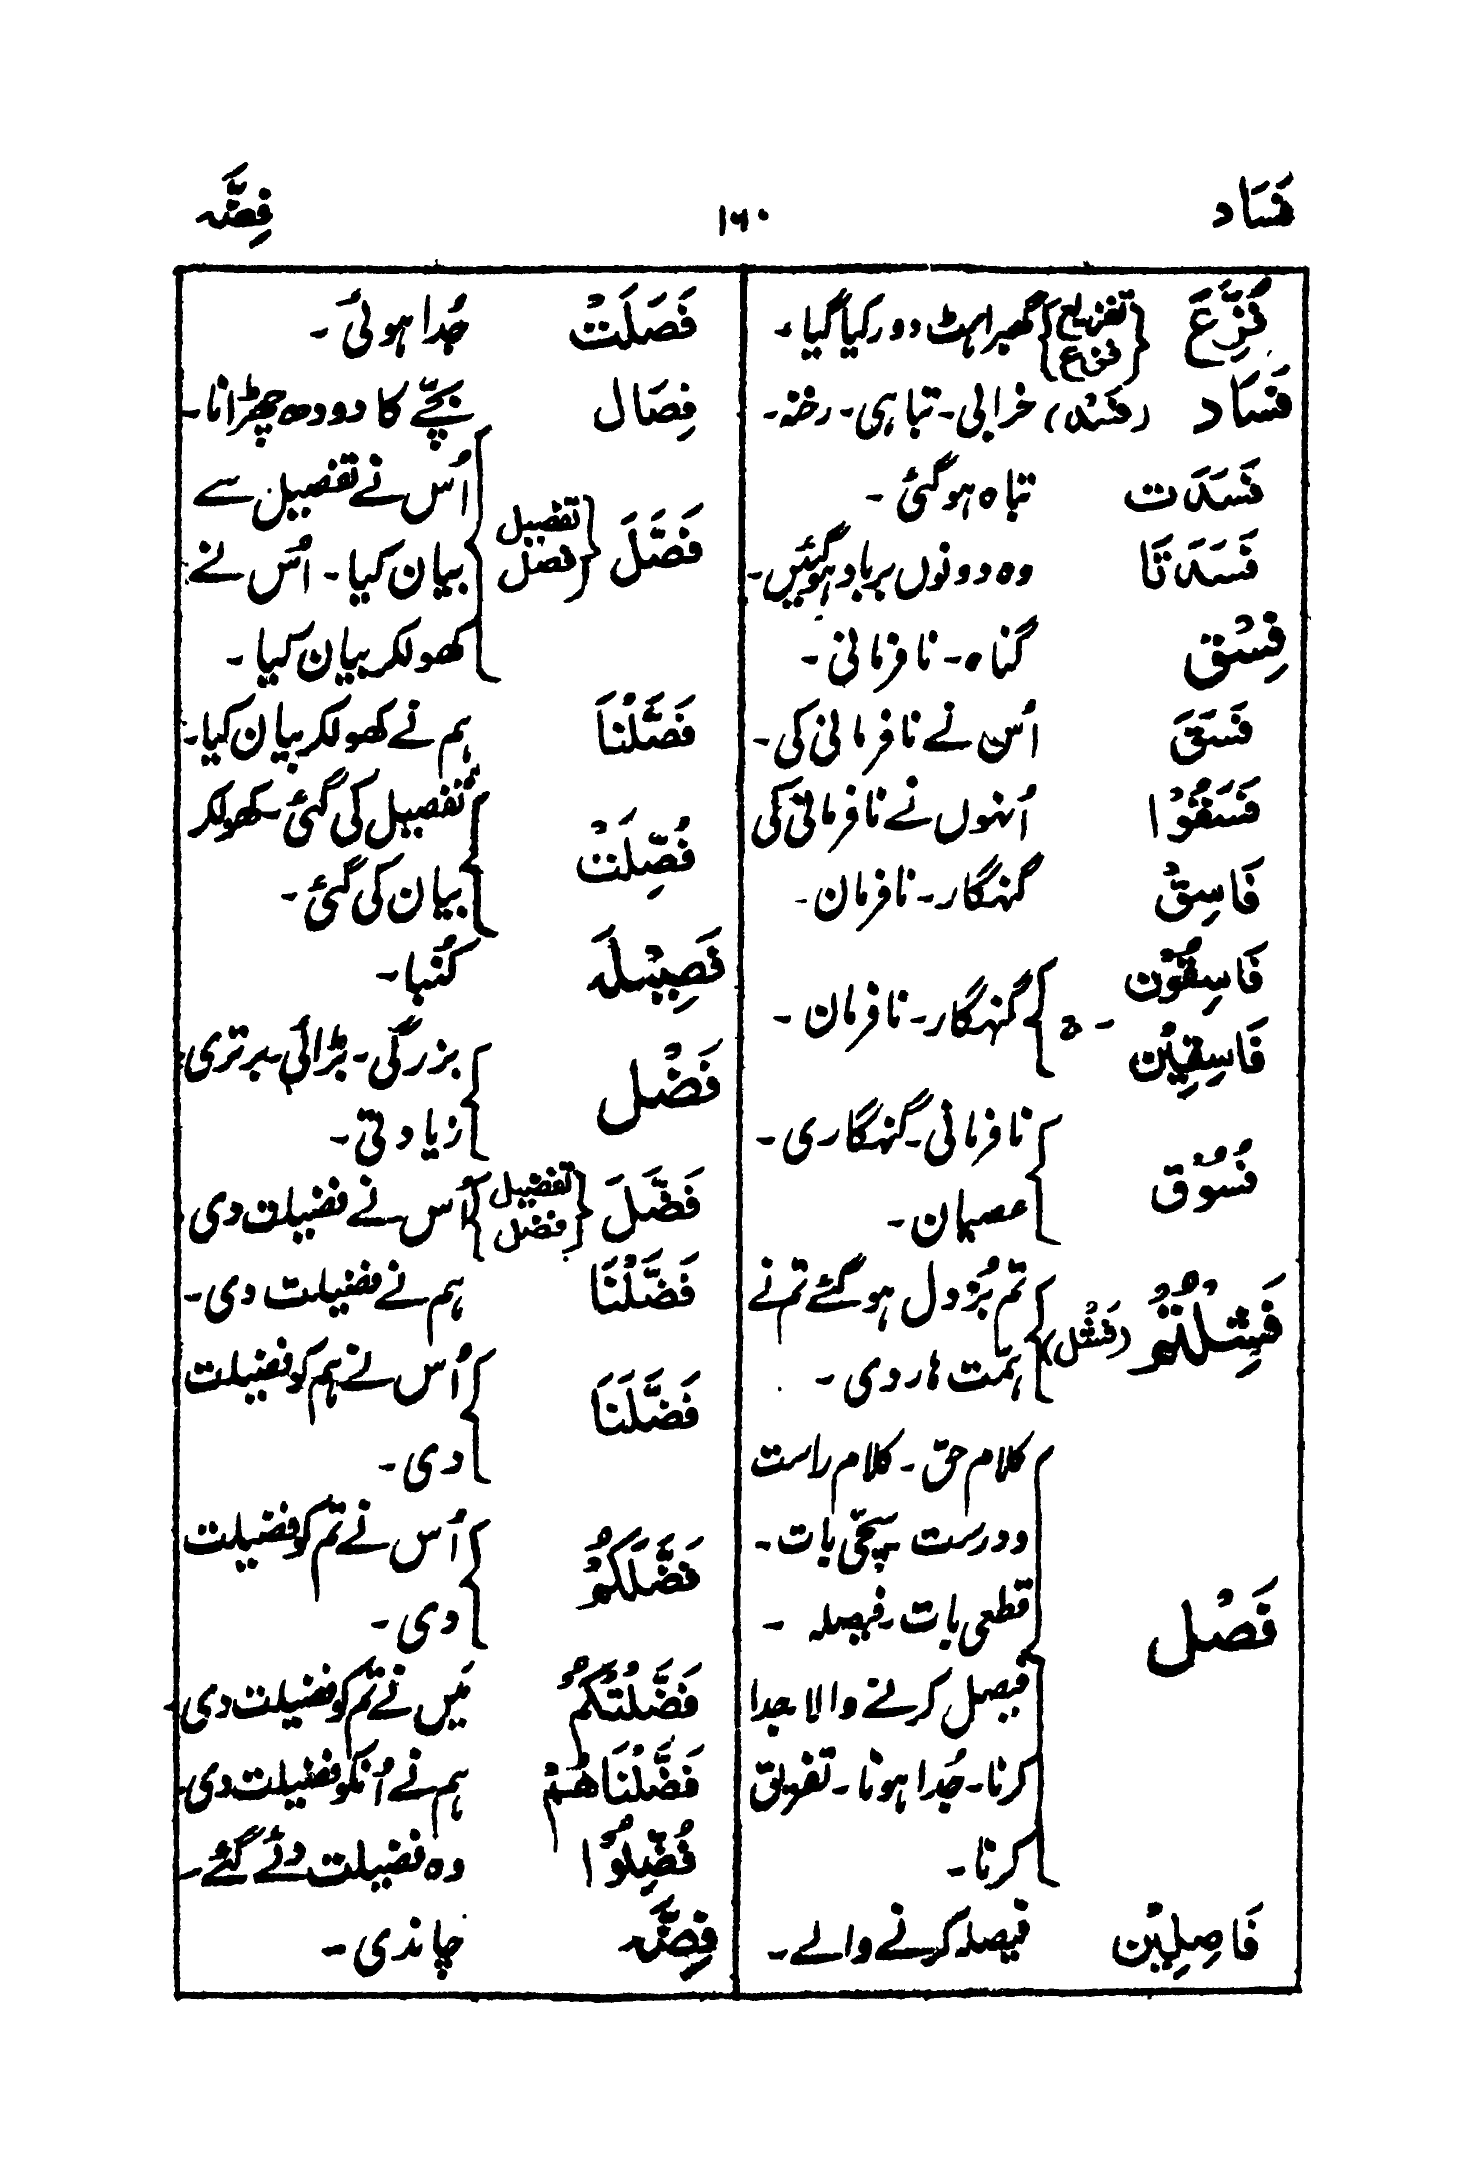 فَسَاد ۱۶۰ فِضَّہ
فُزِّعَ {تفزیع فزع} گھبراہٹ دور کیا گیا۔
فَسَاد (فَسْد) خرابی۔ تباہی۔ رخنہ۔
فَسَدَت تباہ ہوگئی۔
فَسَدَتَا وہ دونوں برباد ہوگئیں۔
فِسْق گناہ۔ نافرمانی۔
فَسَقَ اُس نے نافرمانی کی۔
فَسَقُوْا اُنہوں نے نافرمانی کی
فَاسِقٌ گنہگار۔ نافرمان۔
فَاسِقُوْن
فَاسِقِیْن ۔ ہ گنہگار۔ نافرمان۔
فُسُوْق نافرمانی۔ گنہگاری۔
عصیان۔
فَشِلْتُمْ (فَشْل) تم بُزدل ہوگئے تم نے
ہمت ہار دی۔
فَصْل کلام حق۔ کلام راست
و درست سچّی بات۔
قطعی بات۔ فیصلہ۔
فیصل کرنے والا جدا
کرنا۔ جُدا ہونا۔ تفریق
کرنا۔
فَاصِلِیْن فیصلہ کرنے والے۔
فَصَلَتْ جُدا ہوئی۔
فِصَال بچّے کا دودھ چھڑانا۔
فَصَّلَ {تفصیل فصل} اُس نے تفصیل سے
بیان کیا۔ اُس نے
کھولکر بیان کیا۔
فَصَّلْنَا ہم نے کھولکر بیان کیا۔
فُصِّلَتْ تفصیل کی گئی۔ کھولکر
بیان کی گئی۔
فَصِیْلَہ کُنبا۔
فَضْل بزرگی۔ بڑائی۔ برتری
زیادتی۔
فَضَّلَ {تفضیل فضل} اُس نے فضیلت دی
فَضَّلْنَا ہم نے فضیلت دی۔
فَضَّلَنَا اُس نے ہم کو فضیلت
دی۔
فَضَّلَکُمْ اُس نے تم کو فضیلت
دی۔
فَضَّلْتُکُمْ میں نے تم کو فضیلت دی۔
فَضَّلْنَاھُمْ ہم نے اُنکو فضیلت دی۔
فُضِّلُوْا وہ فضیلت دئے گئے۔
فِضَّہ چاندی۔